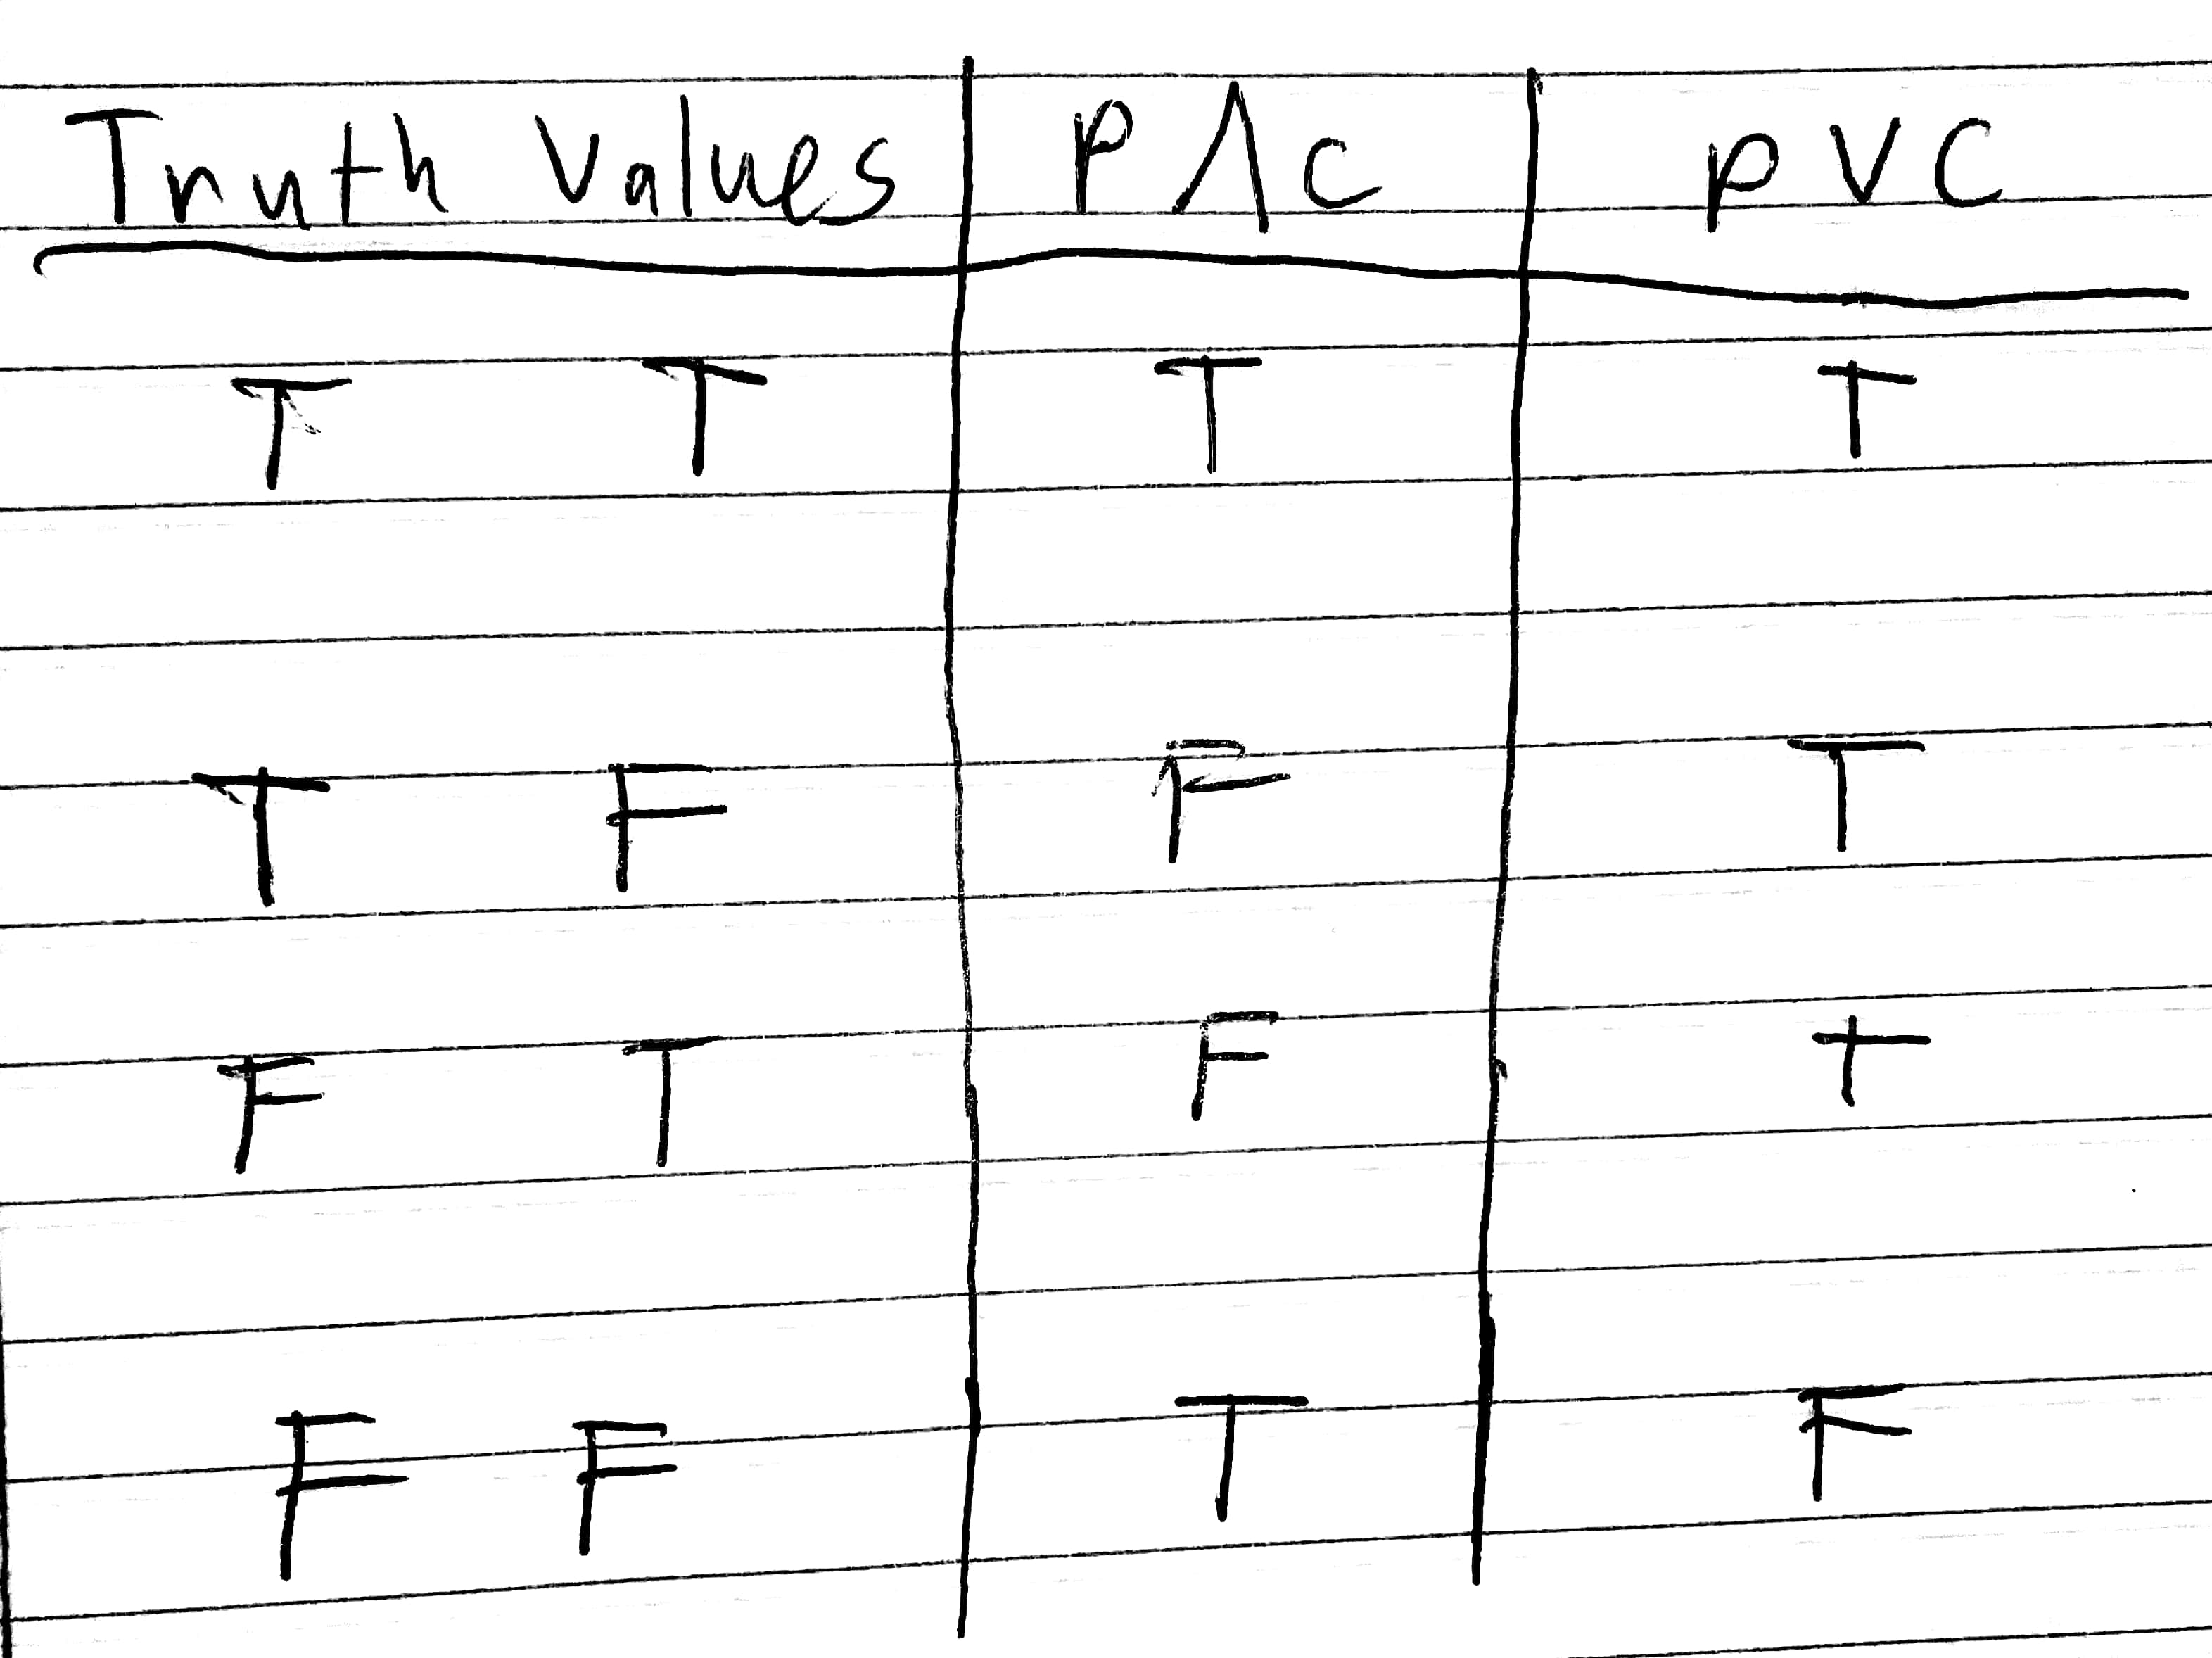 Truth Values P Λ C P V C
T T T T
T F F T
F T F T
F F T F